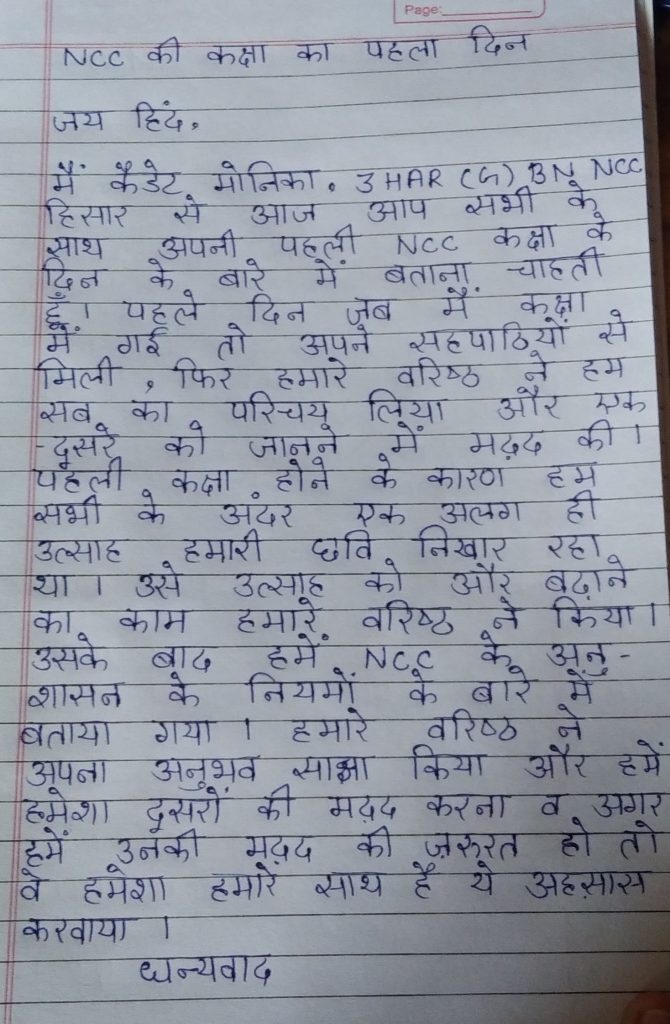 Page:
NCC की कक्षा का पहला दिन
जय हिंद.
मैं कैडेट मोनिका. 3 HAR (G) BN NCC
हिसार से आज आप सभी के
साथ अपनी पहली NCC कक्षा के
दिन के बारे में बताना चाहती
हूँ। पहले दिन जब मैं कक्षा
में गई तो अपने सहपाठियों से
मिली, फिर हमारे वरिष्ठ ने हम
सब का परिचय लिया और एक
-दूसरे को जानने में मद्द की।
पहली कक्षा होने के कारण हम
सभी के अंदर एक अलग ही
उत्साह हमारी छवि निखार रहा
था। उसे उत्साह को और बढ़ाने
का काम हमारे वरिष्ठ ने किया।
उसके बाद हमें NCC के अनु-
शासन के नियमों के बारे में
बताया गया। हमारे वरिष्ठ ने
अपना अनुभव साझा किया और हमें
हमेशा दूसरों की मद्द करना व अगर
हमें उनकी मद्द की ज़रूरत हो तो
वे हमेशा हमारे साथ है ये अहसास
करवाया।
धन्यवाद